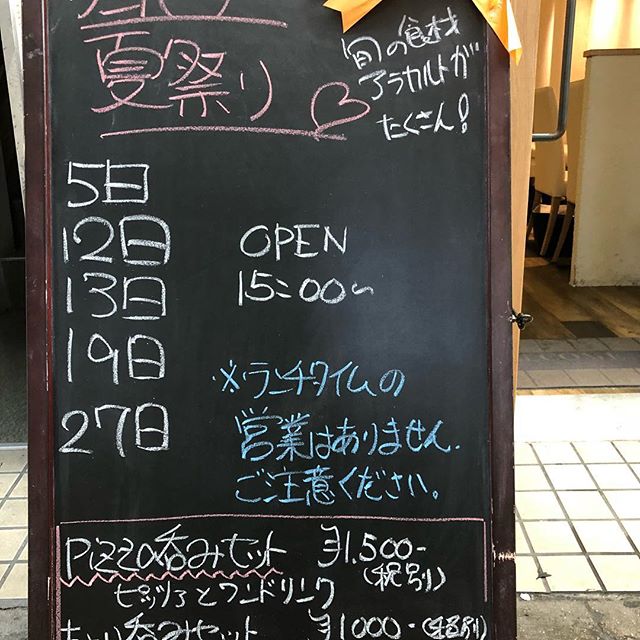 夏祭り
旬の食材
アラカルトが
たくさん!
5日
12日
13日
19日
27日
OPEN
15:00~
※ランチタイムの
営業はありません.
ご注意ください。
Pizza呑みセット ¥1,500-
(税別)
ピッツァとワンドリンク
呑みセット ¥1000-(税別)